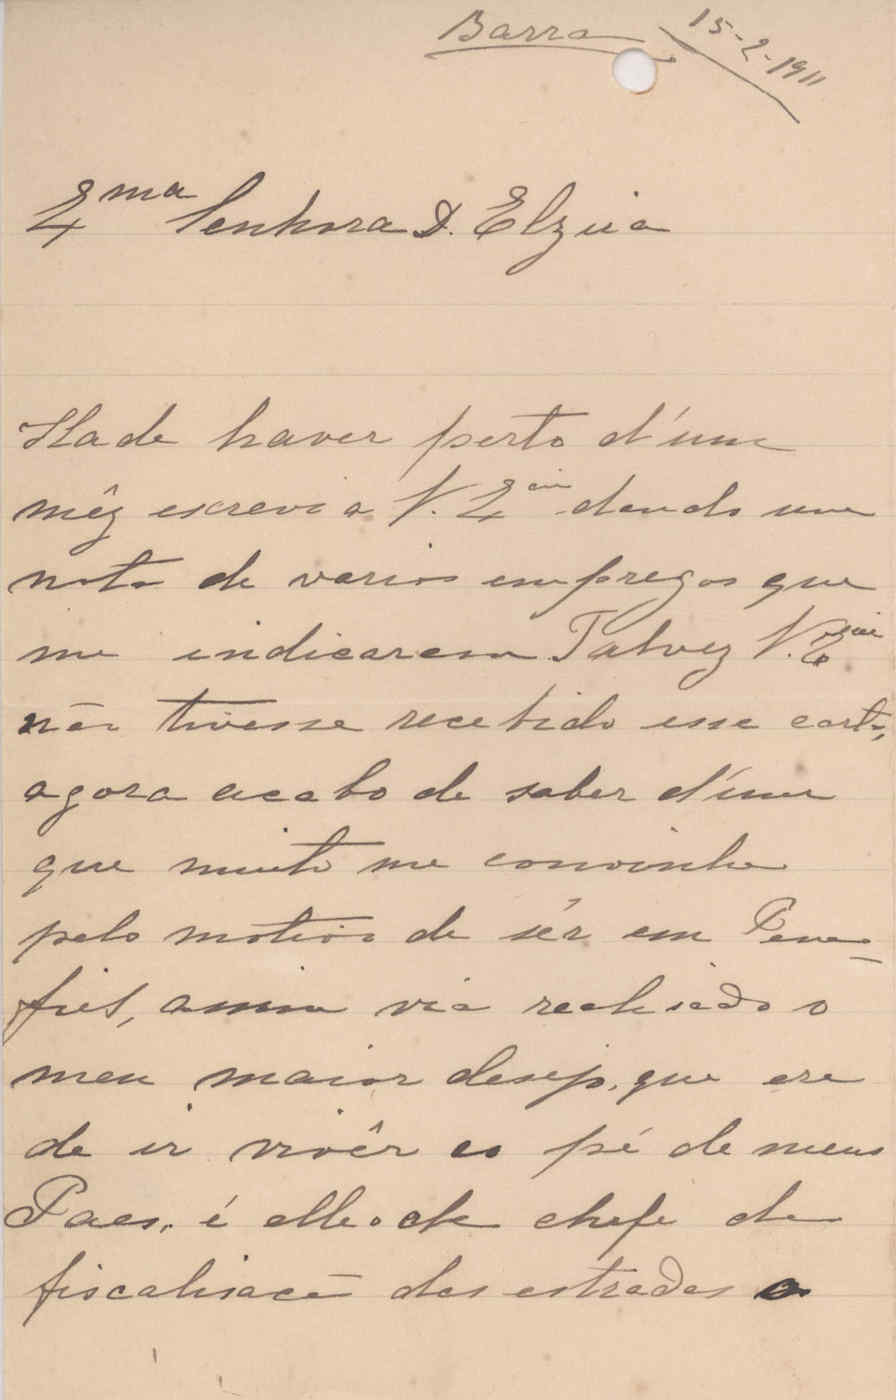 Barra 15-2-1911
Ema Senhora D. Elzira
Hade haver perto d'um
mêz escrevi a V. Ecia dando uma
nota de varios empregos que
me indicarem Talvez V. Ecia
não tivesse recebido esse carta,
agora acabo de saber d'um
que muito me convinha
pelo motivo de sêr em Pena-
fiel, assim via realisado o
meu maior desejo, que era
de ir vivêr ao pé de meus
Paes, é elle o de chefe de
fiscalisacão das estradas